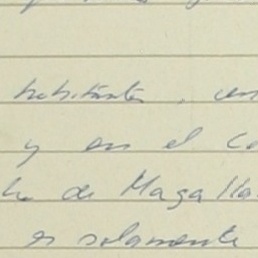 habitantes, en
y en el Co
de Magalla
es solamente